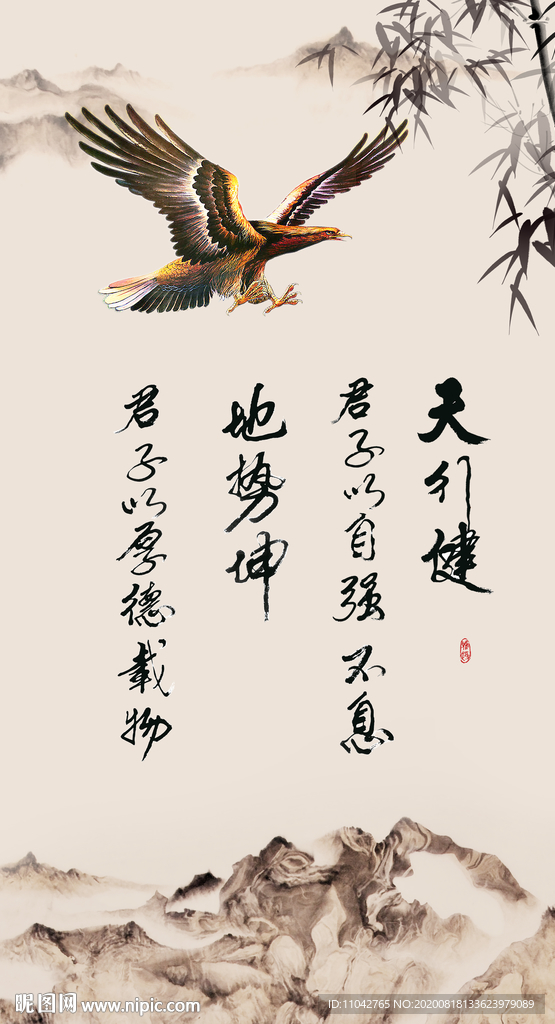 天行健
君子以自强不息
地势坤
君子以厚德载物
昵图网 www.nipic.com
ID:11042765 NO:20200818133623979089